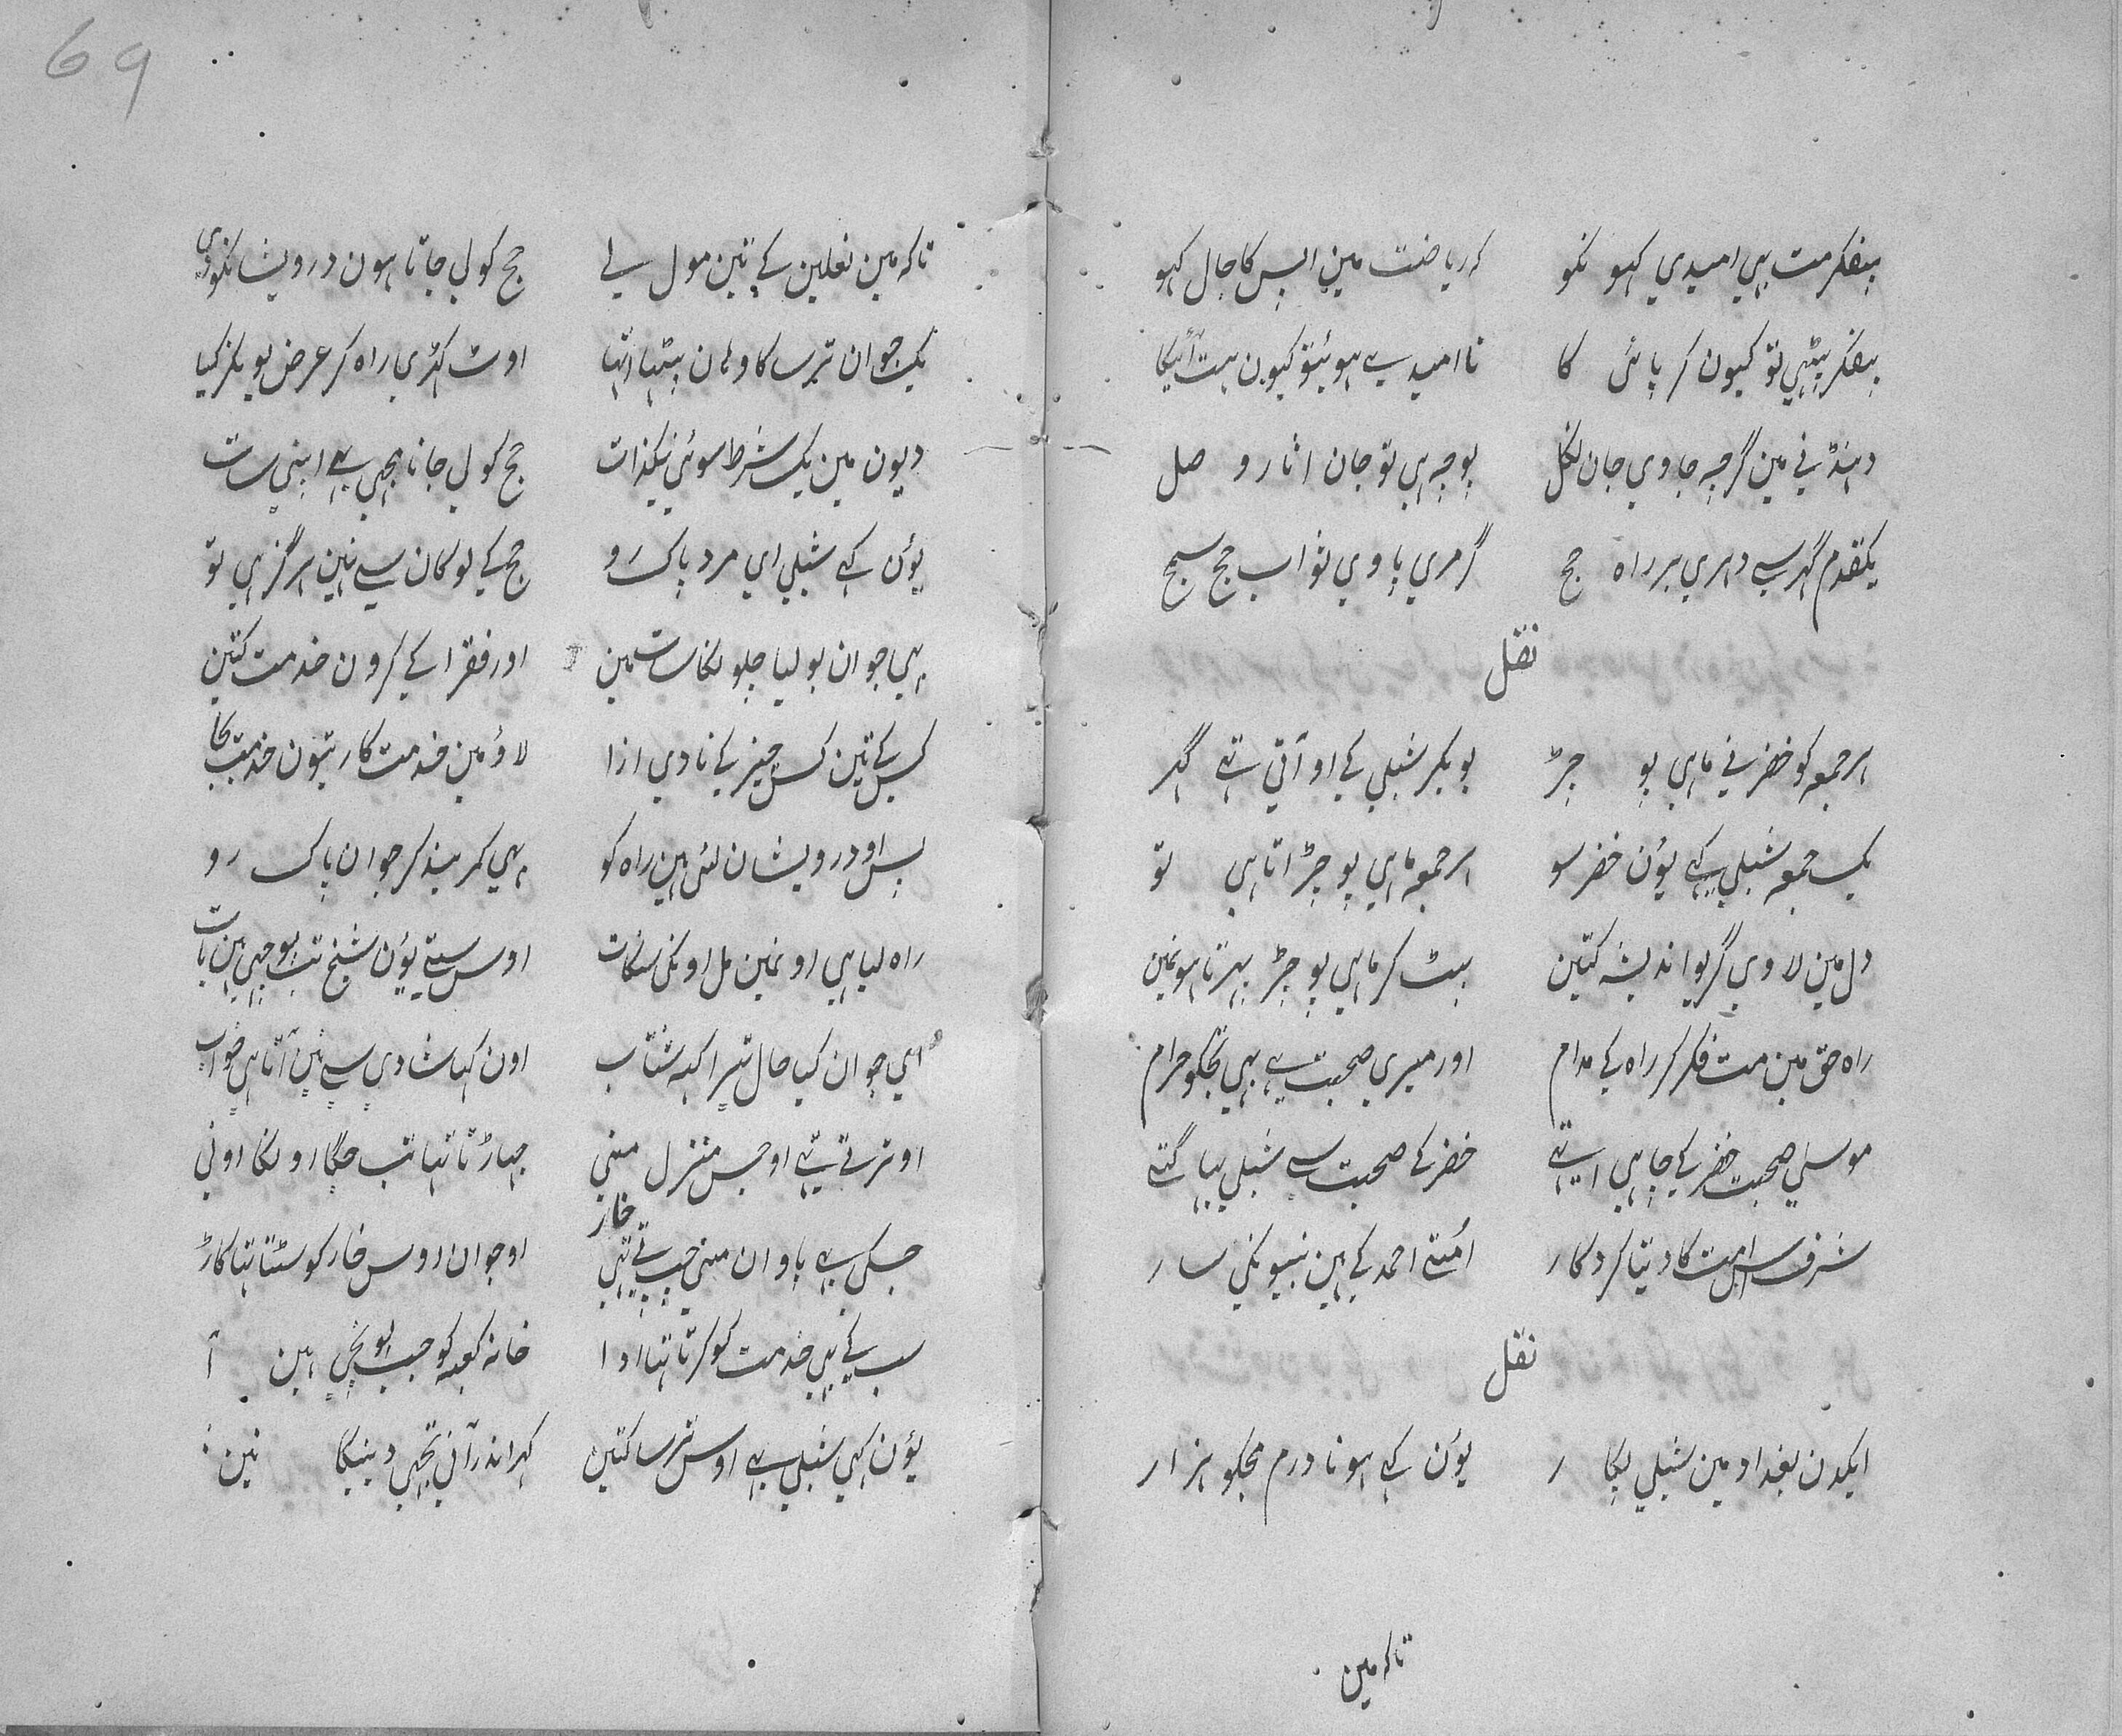 بیفکر مت ہي امیدي کہو نکو کر ریاضت مین اپس کا جال کہو
بیفکر بیٹہي تو کیون کر پائی کا نا امید سے ہوئیتو کیون ہت آئیگا
دہنڈنے مین گرچہ جاوي جان نکل پوچہ ہي تو جان انا رو صل
یکقدم گہر سے دہري بر راہ حج گر مري پاوي ثواب حج سہج
نقل
ہر جمعہ کو خضر نے ماہي پو چڑ بو بکر شبلي کے او آتي تہے گہر
یک جمعہ شبلي کہے یوُن خضر سو ہر جمعہ ماہي پو چڑ اتا ہي تو
دل مین لاوي گر یو اندیشہ کتین ہٹ کر ماہي پو چڑ پہرتا ہو نمین
راہ حق مین مت فکر کر راہ کے مدام اور میري صحبت ہے بہي تجکو حرام
موسلي صحبت خضر کے چاہي اتہے خضر کے صحبت سے شبلي بہا گتے
شرف اس امت کا دیتا کردکار اُمتے احمد کے ہین نبیونکي سار
نقل
ایکدن بغداد مین شبلي پکار یوُن کہے ہونا درم مجکو ہزار
تاکہ مین
69
تاکہ مین نعلین کے تین مول لے حج کو لي جاتا ہون درویشانکو دي
یک جوان ترسا کا وہان بیٹہا اتہا اوٹ کہڑي راہ کر عرض یو بکر کیا
دیون مین یک شرط سوئي نیکذات حج کو لي جانا مجہي بہے اپني سات
یوُن کہے شبلي اي مرد پاک رو حج کے لوکان سے نہین ہرگز ہي تو
بہي جوان بولیا چلونکا ساتمین اور فقرا کے کرون خدمت کتین
کس کے تین کس چیز کے نا دي اذا لاوُ مین خدمت کا رتیون خدمت بجا
بس او درویشان لئی ہین راہ کو بہي کمر بند کر جوان پاک رو
راہ لیا ہي او نمین مل اونکي سنکات اوس ستے یوُن شیخ تب پوچہي ہین بات
اي جوان کیا حال تیرا کہہ شتاب اون کہا شادي سے نین آتا ہي خواب
اوترتے تہے او جس منزل منے جہاڑتا تہا تب جکا رو نکا اونے
جسکي بہے پاوان منے چبتے تہي خار او جوان اوس خار کو سٹتا تہا کاڑ
سب کے بہي خدمت کو کرتا تہا ادا خانہ کعبہ کو جب پونچي ہین آ
یوُن کہي شبلي بہے اوس ترسا کتین کہر اندر آنے تجہي دینکا نین